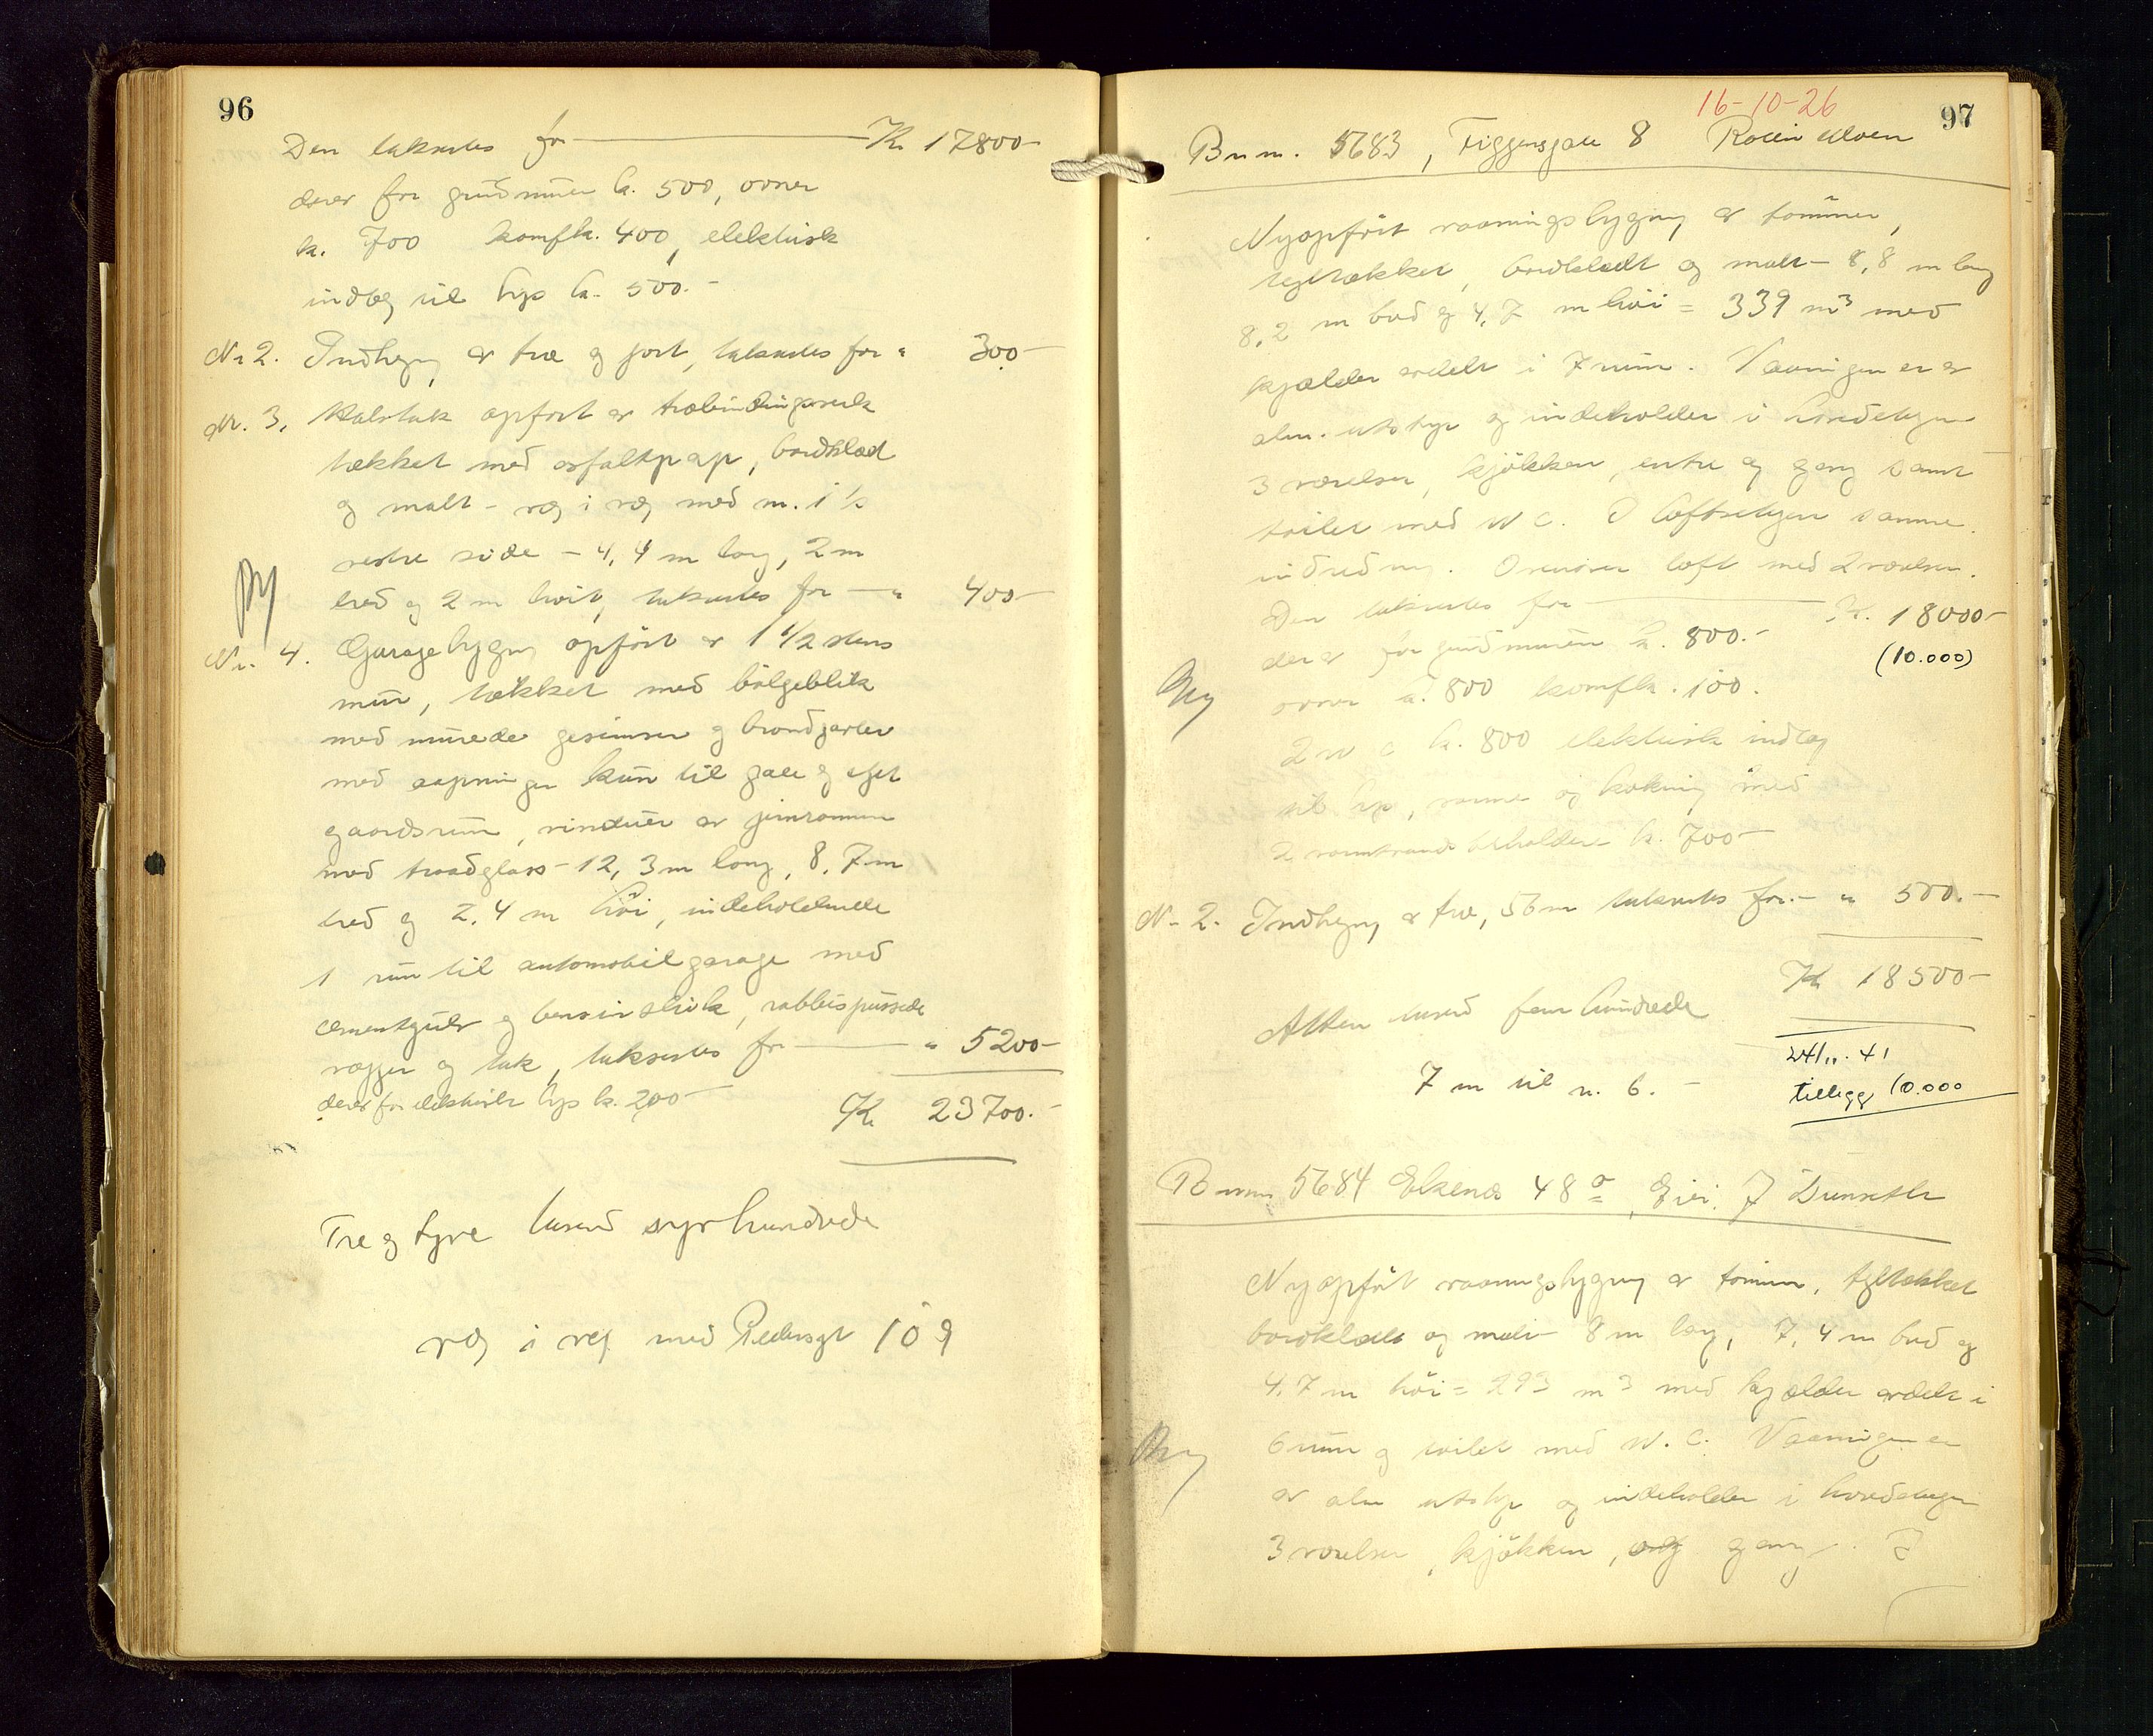 96
Den takseres for Kr 17800-
derav for grundmuren k. 500, ovner
k. 700 komfk. 400, elektrisk
indlæg til lys k. 500.-
Nr 2. Indhegn av træ og port, takseres for " 300-
Nr. 3. Halvtak opført av træbindingsverk
tækket med asfaltpap, bordklæd
og malt - væg i væg med m. 1 %
vestre side - 4,4 m lang, 2 m
bred og 2 m høit, takseres for - " 400-
Ny
Nr. 4. Garagebygn opført av 1 1/2 stens
mur, tækket med bølgeblik
med murede gesimser og brandgavler
med aapninger kun til gate og eget
gaardsrum, vinduer av jernrammer
med traadglass - 12,3 m lang, 8,7 m
bred og 2,4 m høi, indeholdende
1 rum til automobilgarage med
cementgulv og bensinsluk, rabbitspussede
vægger og tak, takseres for " 5200-
derav for elektrisk lys k. 200-
Kr 23700.-
Tre og tyve tusend syvhundrede
væg i væg med Pedersgt 109
16-10-26 97
Bnm. 5683, Figgensgate 8
Nyopført vaaningsbygning av tømmer,
tegltækket, bordklædt og malt - 8,8 m lang
8,2 m bred og 4,7 m høi = 339 m³ med
kjælder avdelt i 7 rum. Vaaningen er av
alm. utstyr og indeholder i hovedetagen
3 værelser, kjøkken, entre og gang samt
toilet med W C. I loftsetagen samme
indredning. Ovenover loft med 2 værelser.
Den takseres for Kr. 18000-
derav for grundmuren k. 800.- (10.000)
Ny
ovner k. 800 komfk. 100.
2 W C k. 800 elektrisk indlæg
til lys, varme og kokning med
2 varmtvandsbeholdere k. 700-
Nr 2. Indhegn av træ, 56 m takseres for - " 500.-
Kr 18500-
Atten tusend fem hundrede
24/11. 41
7 m til n. 6. -
tillegg 10.000
Bnum 5684 Ekenes 48 a, Eier. J
Nyopført vaaningsbygning av tømmer, tegltækket
bordklædt og malt - 8 m lang, 7,4 m bred og
4.7 m høi = 293 m³ med kjælder avdelt i
6 rum og toilet med W. C. Vaaningen er
Ny
av alm utstyr og indeholder i hovedetagen
3 værelser, kjøkken, og gang. I